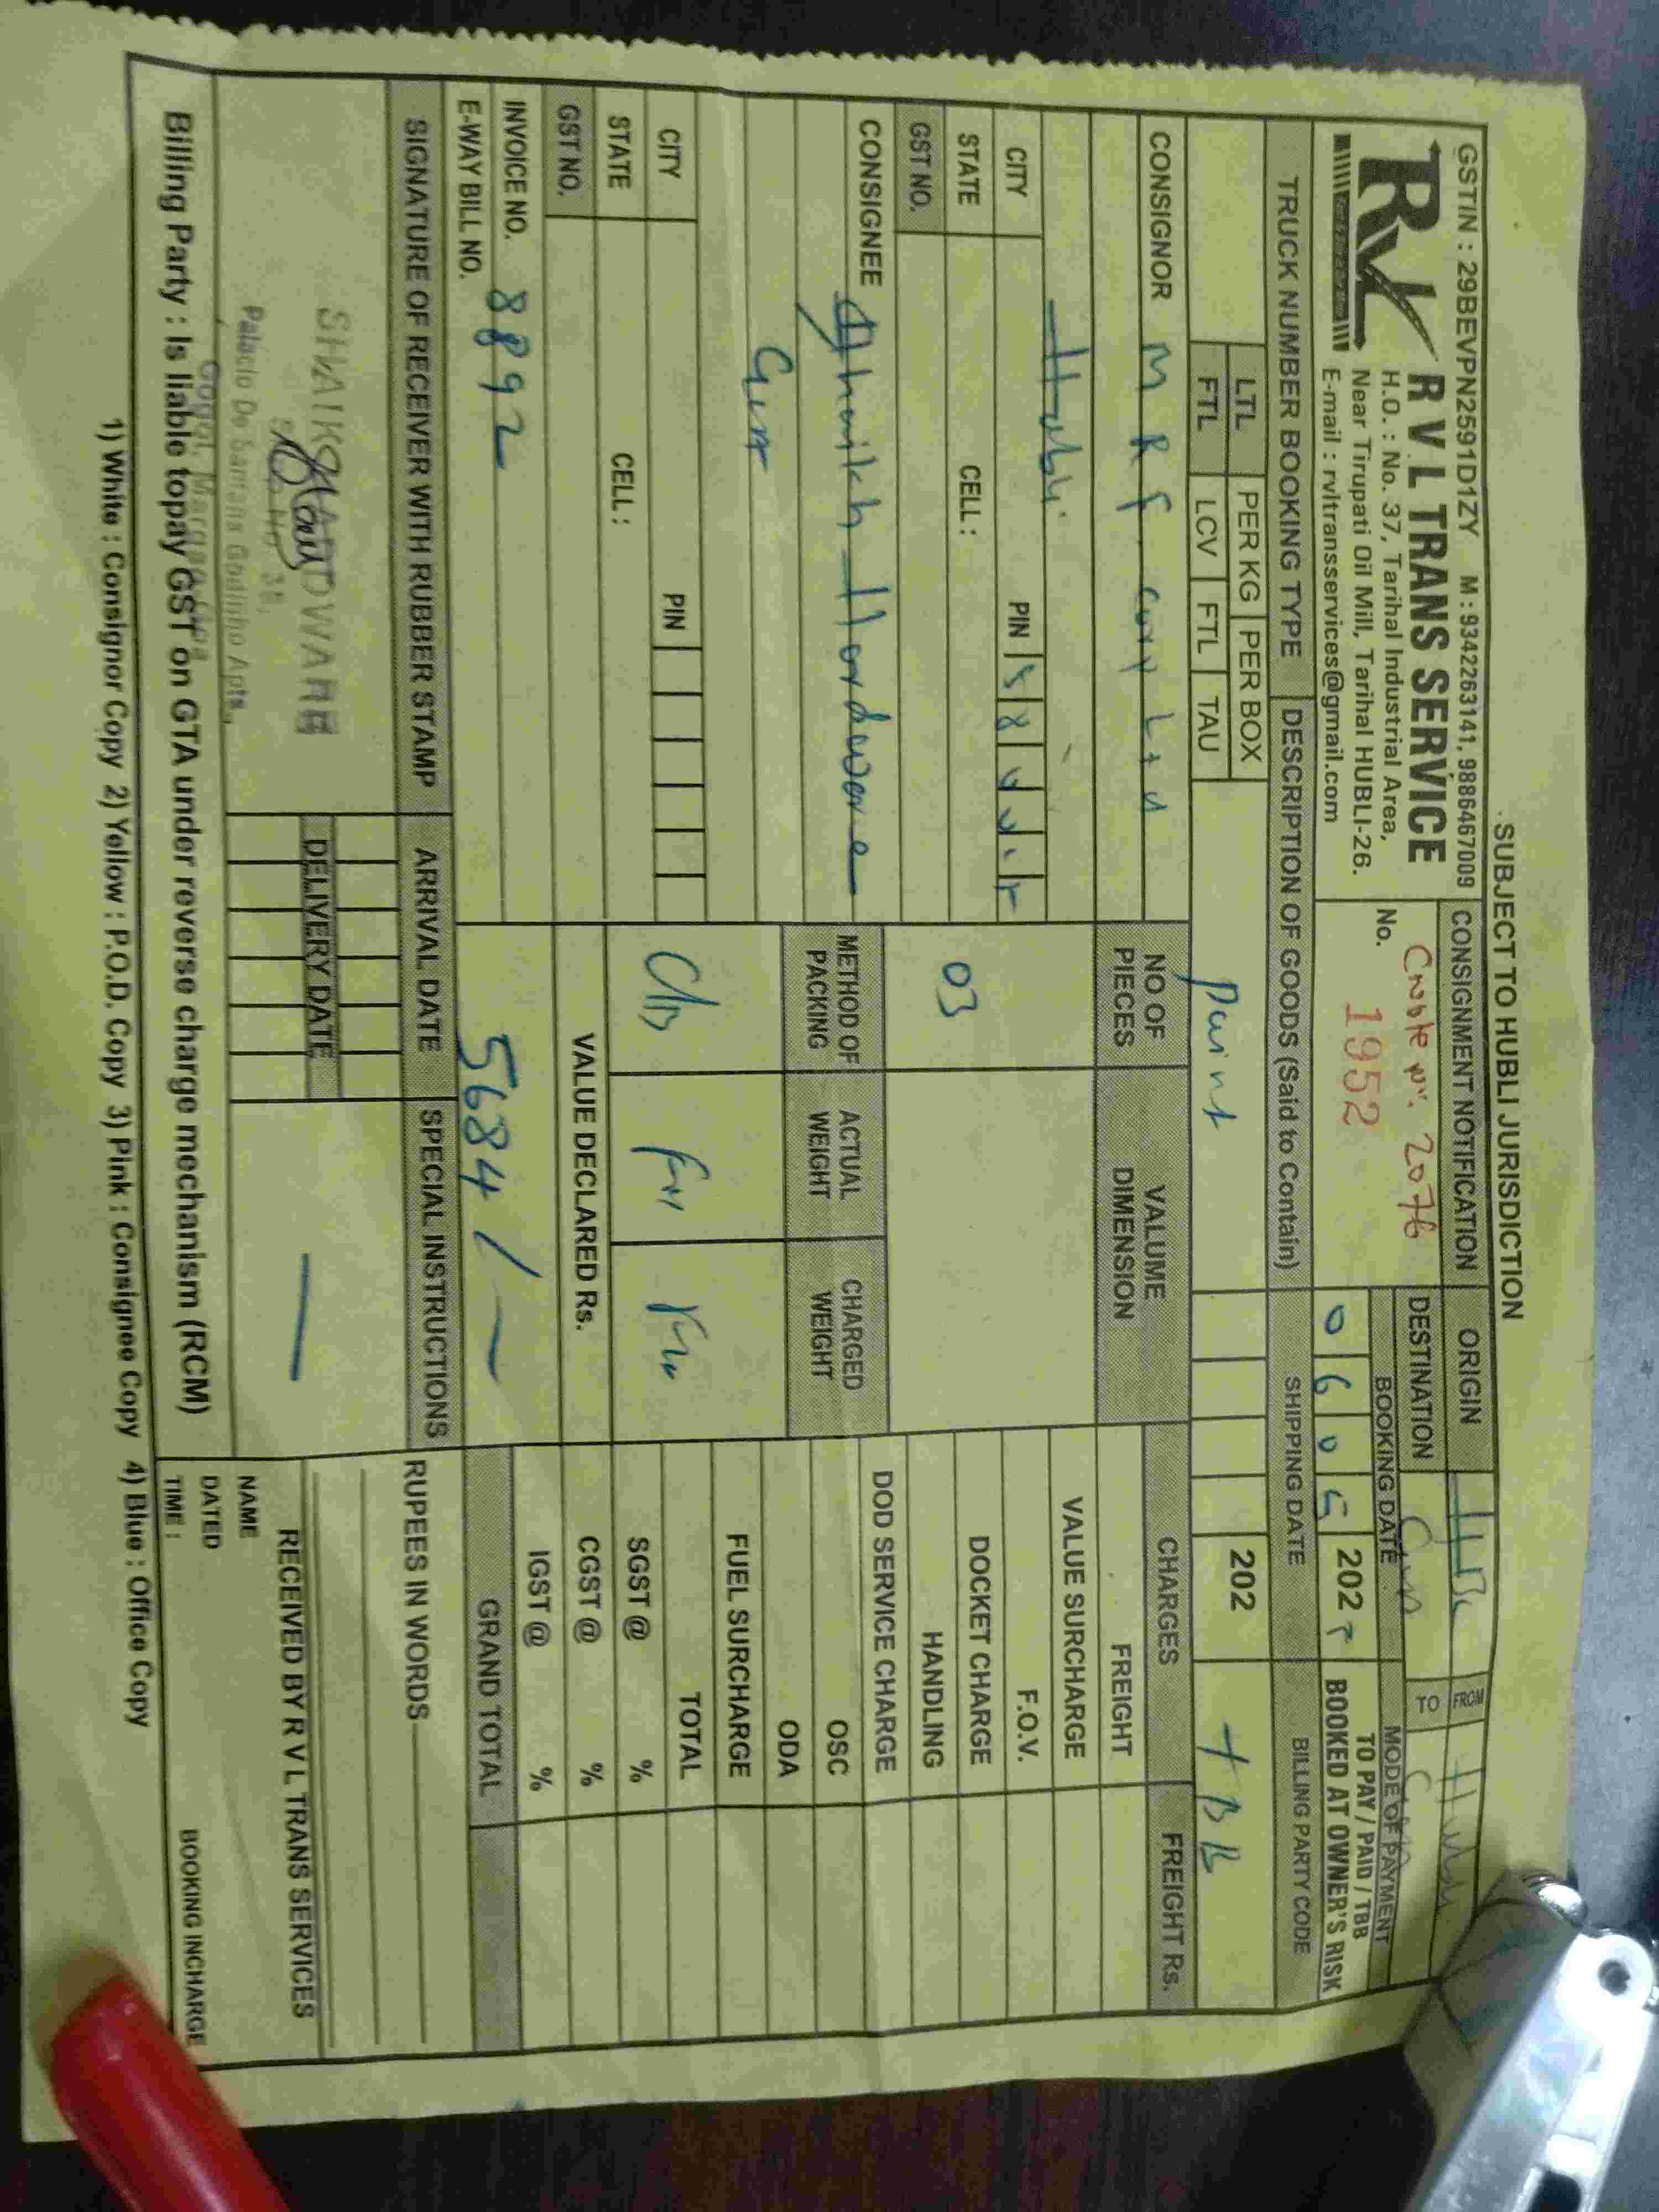 SUBJECT TO HUBLI JURISDICTION
GSTIN : 29BEVPN2591D1ZY M : 9342263141, 9886467009
R V L TRANS SERVICE
H.O. : No. 37, Tarihal Industrial Area,
Near Tirupati Oil Mill, Tarihal HUBLI-26.
E-mail : rvltransservices@gmail.com
CONSIGNMENT NOTIFICATION
2076
No. 1952
ORIGIN
FROM
DESTINATION
TO
BOOKING DATE
MODE OF PAYMENT
TO PAY / PAID / TBB
BOOKED AT OWNER'S RISK
0 6 0 5 202
TRUCK NUMBER BOOKING TYPE
DESCRIPTION OF GOODS (Said to Contain)
SHIPPING DATE
BILLING PARTY CODE
LTL PER KG PER BOX
FTL LCV FTL TAU
Paint
202
TBB
CONSIGNOR M R F Corp Ltd
Hubli
CITY PIN
STATE CELL :
GST NO.
CONSIGNEE Hardware
CITY PIN
STATE CELL :
GST NO.
INVOICE NO. 8892
E-WAY BILL NO.
NO OF PIECES
VALUME DIMENSION
03
METHOD OF PACKING
ACTUAL WEIGHT
CHARGED WEIGHT
VALUE DECLARED Rs.
5684/-
CHARGES FREIGHT Rs.
FREIGHT
VALUE SURCHARGE
F.O.V.
DOCKET CHARGE
HANDLING
DOD SERVICE CHARGE
OSC
ODA
FUEL SURCHARGE
TOTAL
SGST @ %
CGST @ %
IGST @ %
GRAND TOTAL
SIGNATURE OF RECEIVER WITH RUBBER STAMP
ARRIVAL DATE
SPECIAL INSTRUCTIONS
DELIVERY DATE
RUPEES IN WORDS
RECEIVED BY R V L TRANS SERVICES
NAME
DATED
TIME :
BOOKING INCHARGE
Billing Party : Is liable topay GST on GTA under reverse charge mechanism (RCM)
1) White : Consignor Copy 2) Yellow : P.O.D. Copy 3) Pink : Consignee Copy 4) Blue : Office Copy